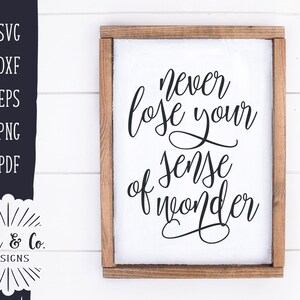 SVG
DXF
EPS
PNG
PDF
& Co.
SIGNS
never
lose your
sense
of wonder